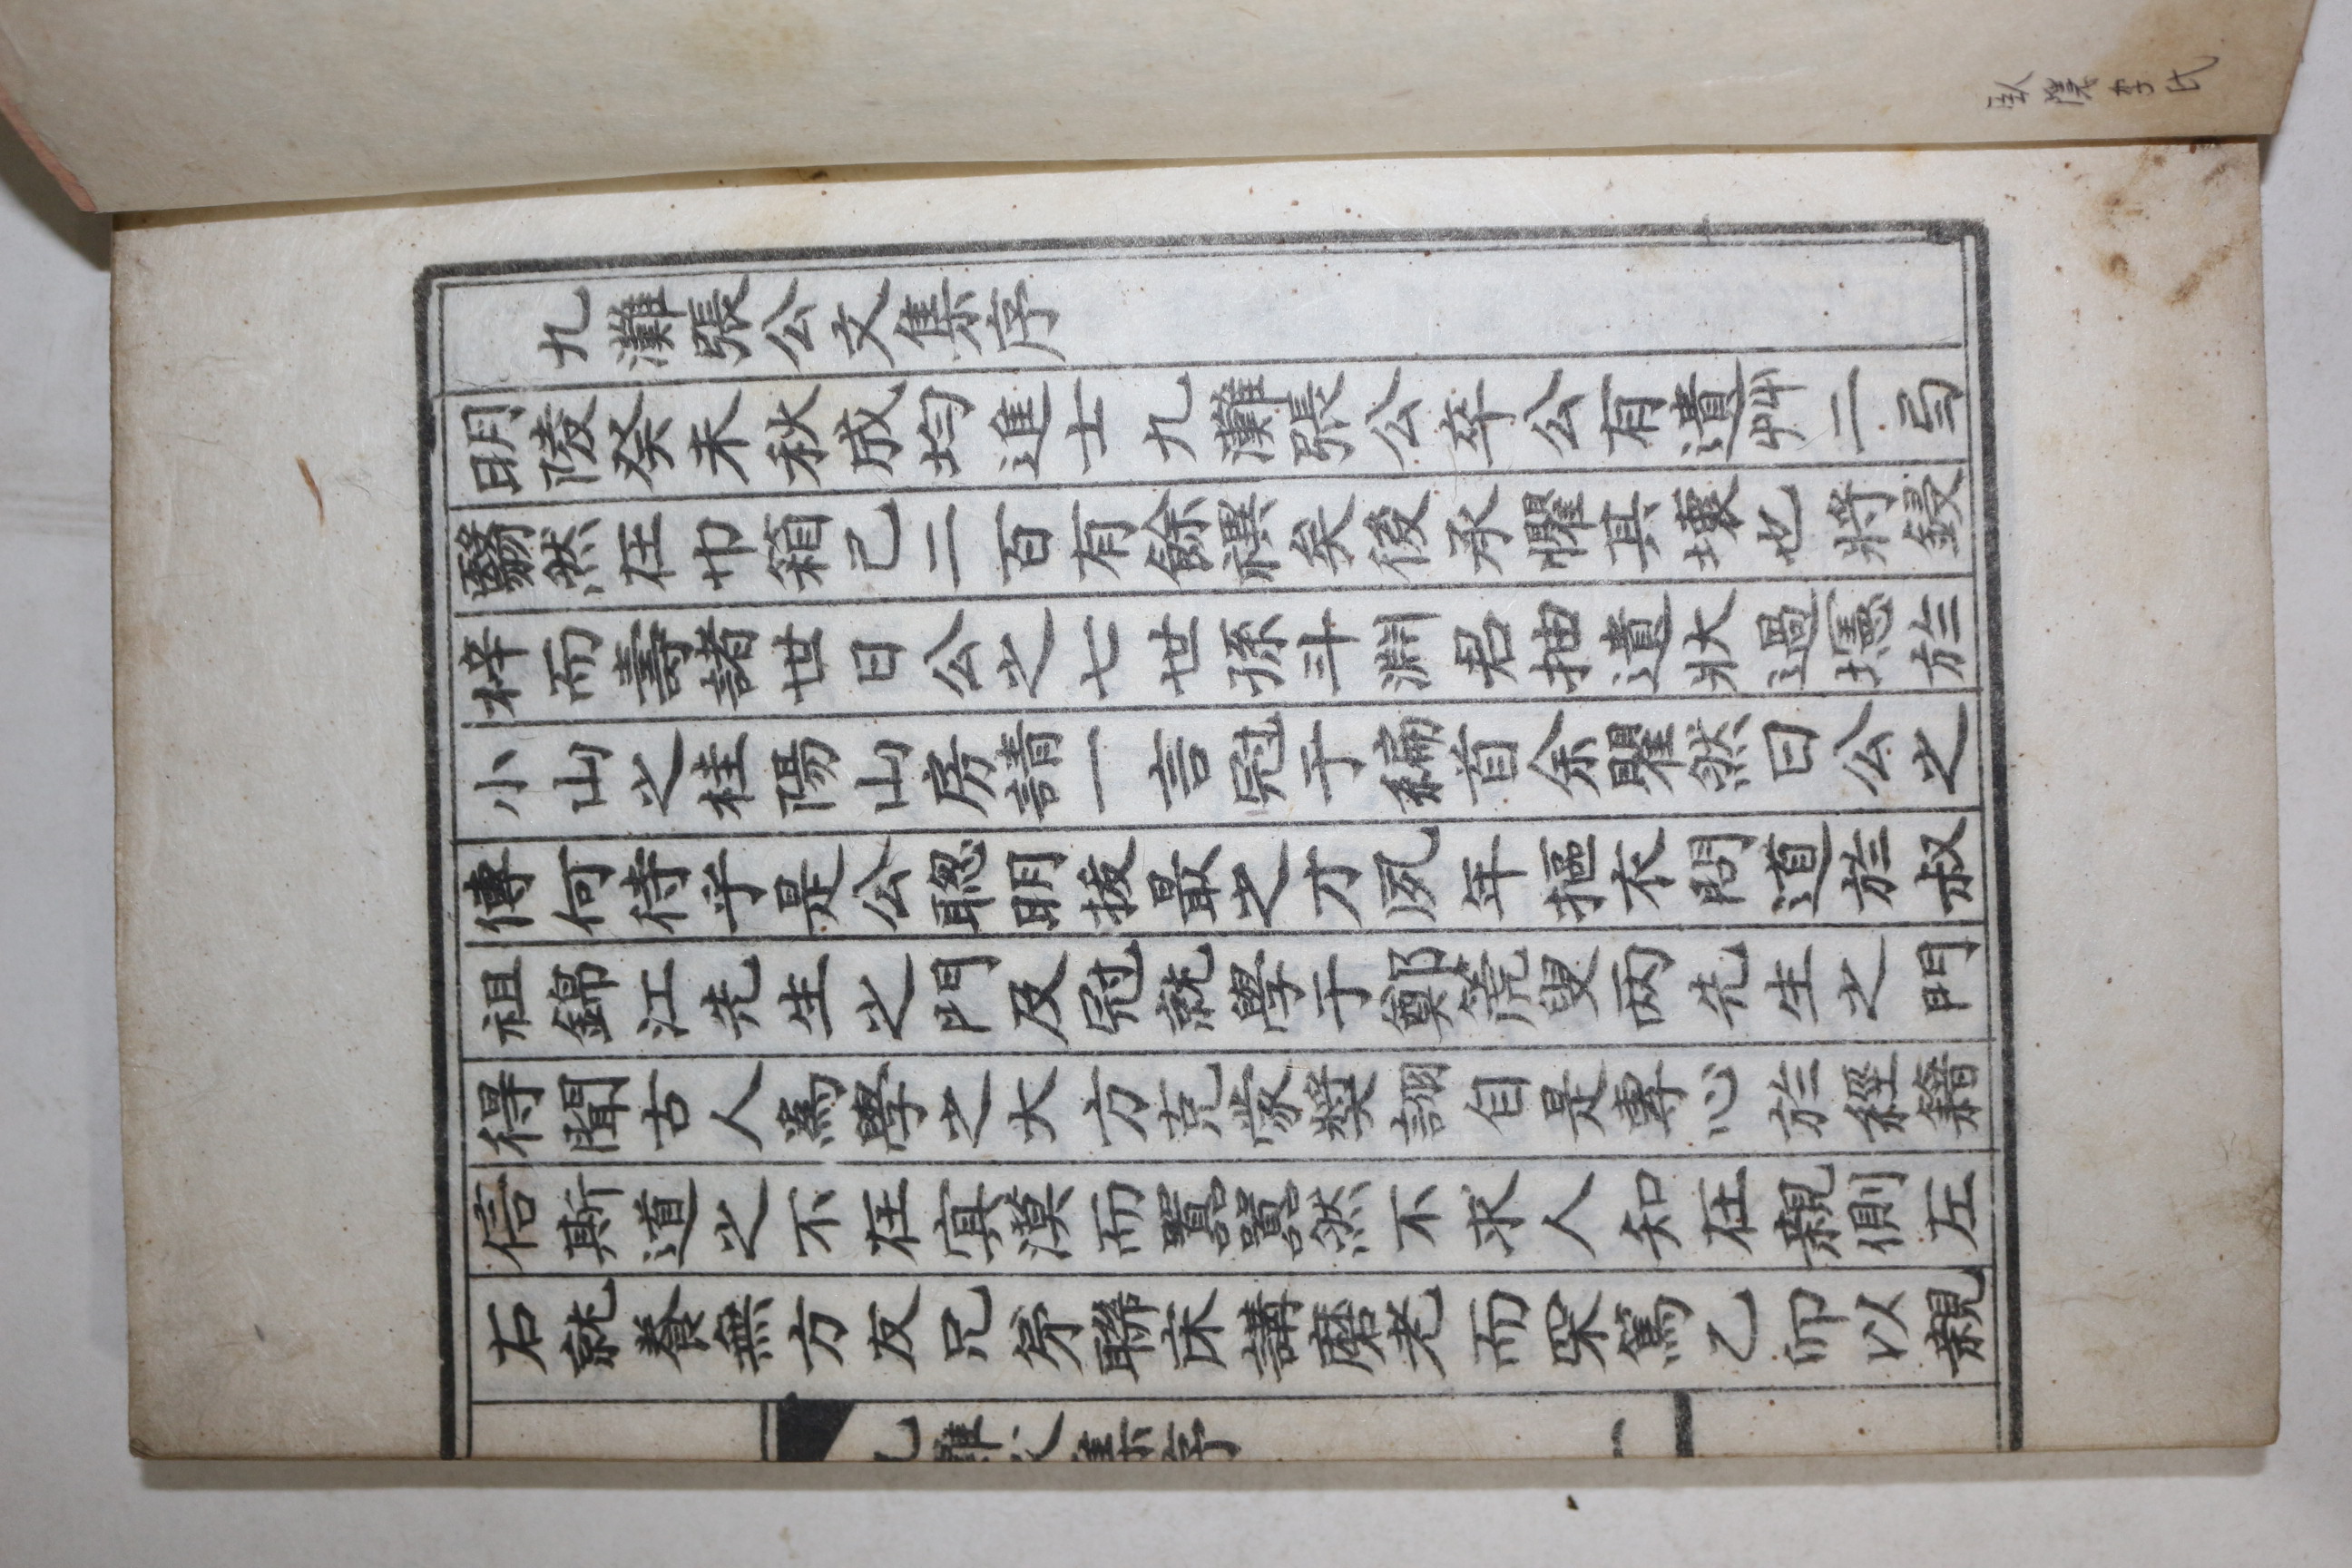 九灘張公文集序
明陵癸未秋成均進士九灘張公卒公有遺艸二弓
翳然在巾箱已二百有餘禩矣後承懼其壞也將鋟
梓而壽諸世日公之七世孫斗淵君抽遺狀過壎於
小山之桂陽山房請一言冠于編首余瞿然曰公之
傳何待乎是公聡明拔最之才夙年摳衣問道於叔
祖錦江先生之門及冠就學于鄭篪叟兩先生之門
得聞古人為學之大方克蒙奬詡自是專心於經籍
信斯道之不在寘漠而囂囂然不求人知在親側左
右就養無方友兄弟聯床講磨老而冞篤乙卯以親
九灘文集序
李氏